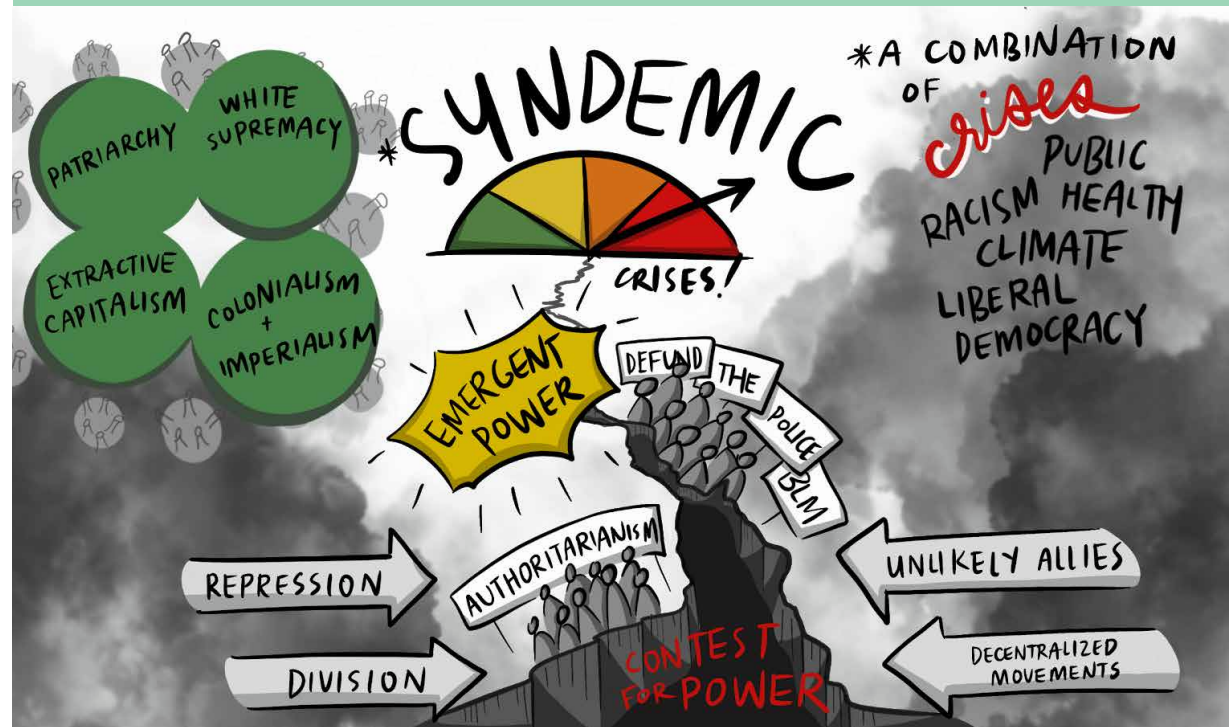 PATRIARCHY
WHITE
SUPREMACY
EXTRACTIVE
CAPITALISM
COLONIALISM
+
IMPERIALISM
*SYNDEMIC
CRISES!
*A COMBINATION
OF crises
PUBLIC
RACISM HEALTH
CLIMATE
LIBERAL
DEMOCRACY
EMERGENT
POWER
DEFUND
THE
POLICE
BLM
AUTHORITARIANISM
REPRESSION
DIVISION
CONTEST
FOR POWER
UNLIKELY ALLIES
DECENTRALIZED
MOVEMENTS